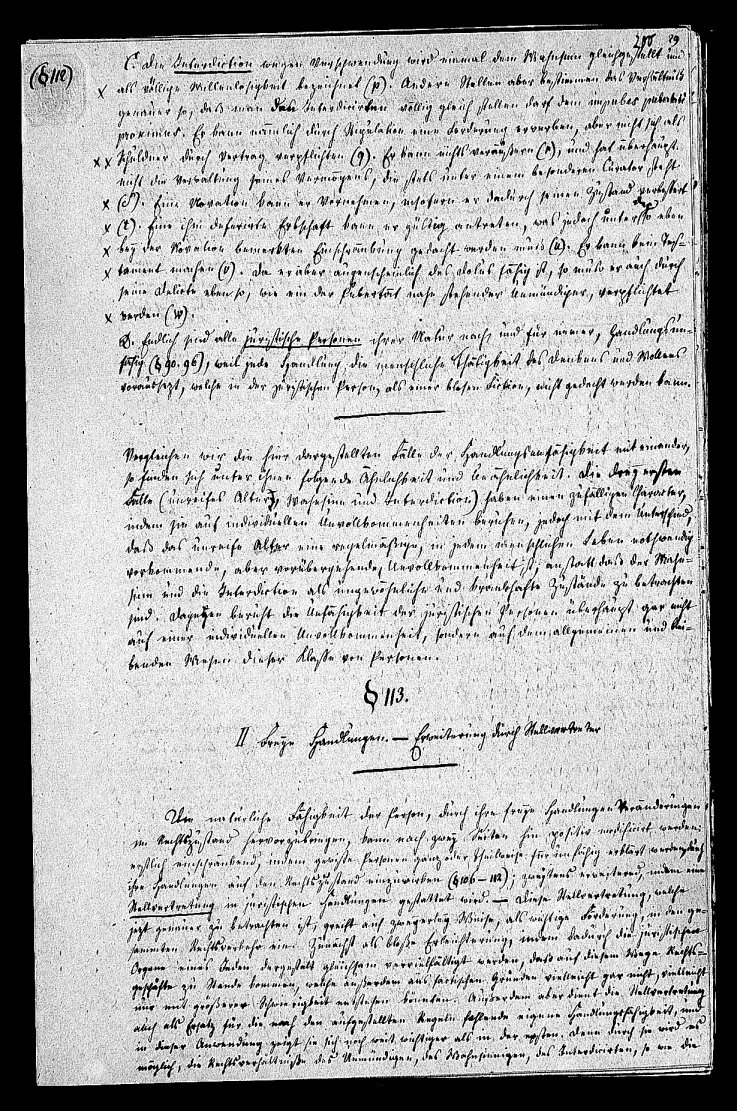 29
(§ 112)
C. Die Interdiction wegen Verschwendung wird einmal dem Wahnsinn gleichgestellt und
als völlige Willenlosigkeit bezeichnet (p). Andere Stellen aber bestimmen das Verhältniß
genauer so, daß man den Interdicirten völlig gleich stellen darf dem impubes pubertati
proximus. Er kann nämlich durch Stipulation eine Forderung erwerben, aber nicht sich als
Schuldner durch Vertrag verpflichten (q). Er kann nichts veräußern (r), und hat überhaupt
nicht die Verwaltung seines Vermögens, die stets unter einem besonderen Curator steht
(s). Eine Novation kann er vornehmen, insofern er dadurch seinen Zustand verbessert
(t). Eine ihm deferirte Erbschaft kann er gültig antreten, was jedoch unter der eben
bey der Novation bemerkten Einschränkung gedacht werden muß (u). Er kann kein Tes-
tament machen (v). Da er aber augenscheinlich des dolus fähig ist, so muß er auch durch
seine Delicte eben so, wie ein der Pubertät nahe stehender Unmündiger, verpflichtet
werden (w).
D. Endlich sind alle juristische Personen ihrer Natur nach, und für immer, handlungsun-
fähig (§ 90. 96), weil jede Handlung die menschliche Thätigkeit des Denkens und Wollens
voraussetzt, welche in der juristischen Person, als einer bloßen Fiction, nicht gedacht werden kann.
Vergleichen wir die hier dargestellten Fälle der Handlungsunfähigkeit mit einander,
so finden sich unter ihnen folgende Ähnlichkeit und Unähnlichkeit. Die drey ersten
Fälle (unreifes Alter, Wahnsinn und Interdiction) haben einen zufälligen Character,
indem sie auf individuellen Unvollkommenheiten beruhen, jedoch mit dem Unterschied,
daß das unreife Alter eine regelmäßige, in jedem menschlichen Leben nothwendig
vorkommende, aber vorübergehende, Unvollkommenheit ist, anstatt daß der Wahn-
sinn und die Interdiction als ungewöhnliche und krankhafte Zustände zu betrachten
sind. Dagegen beruht die Unfähigkeit der juristischen Personen überhaupt gar nicht
auf einer individuellen Unvollkommenheit, sondern auf dem allgemeinen und blei-
benden Wesen dieser Klasse von Personen.
§ 113.
II Freye Handlungen. — Erweiterung durch Stellvertreter
Die natürliche Fähigkeit der Person, durch ihre freye Handlungen Veränderungen
im Rechtszustand hervorzubringen, kann nach zwey Seiten hin positiv modificirt werden:
erstlich einschränkend, indem gewisse Personen ganz oder theilweise für unfähig erklärt werden, durch
ihre Handlungen auf den Rechtszustand einzuwirken (§ 106–112); zweytens erweiternd, indem eine
Stellvertretung in juristischen Handlungen gestattet wird. — Diese Stellvertretung, welche
jetzt genauer zu betrachten ist, greift auf zweyerley Weise, als wichtige Förderung, in den ge-
sammten Rechtsverkehr ein. Zunächst als bloße Erleichterung, indem dadurch die juristischen
Organe eines Jeden dergestalt gleichsam vervielfältigt werden, daß auf diesem Wege Rechts-
geschäfte zu Stande kommen, welche außerdem aus factischen Gründen vielleicht gar nicht, vielleicht
nur mit größerer Schwierigkeit entstehen könnten. Außerdem aber dient die Stellvertretung
auch als Ersatz für die nach den aufgestellten Regeln fehlende eigene Handlungsfähigkeit, und
in dieser Anwendung zeigt sie sich noch weit wichtiger als in der ersten. Denn durch sie wird es
möglich, die Rechtsverhältnisse des Unmündigen, des Wahnsinnigen, des Interdicirten, so wie die